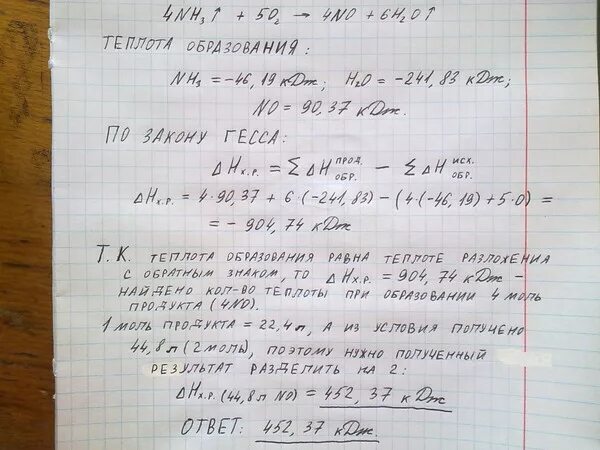 4NH₃↑ + 5O₂ → 4NO + 6H₂O↑
ТЕПЛОТА ОБРАЗОВАНИЯ:
NH₃ = -46, 19 кДж; H₂O = -241, 83 кДж;
NO = 90, 37 кДж.
ПО ЗАКОНУ ГЕССА:
ΔHх.р. = ΣΔH ПРОД. ОБР. - ΣΔH ИСХ. ОБР.
ΔHх.р. = 4·90,37 + 6·(-241,83) - (4·(-46,19)+5·0) =
= - 904, 74 кДж
Т.К. ТЕПЛОТА ОБРАЗОВАНИЯ РАВНА ТЕПЛОТЕ РАЗЛОЖЕНИЯ
С ОБРАТНЫМ ЗНАКОМ, ТО ΔHх.р. = 904, 74 кДж -
НАЙДЕНО КОЛ-ВО ТЕПЛОТЫ ПРИ ОБРАЗОВАНИИ 4 МОЛЬ
ПРОДУКТА (4NO).
1 МОЛЬ ПРОДУКТА = 22,4 л, А ИЗ УСЛОВИЯ ПОЛУЧЕНО
44,8 л (2 МОЛЬ), ПОЭТОМУ НУЖНО ПОЛУЧЕННЫЙ
РЕЗУЛЬТАТ РАЗДЕЛИТЬ НА 2:
ΔHх.р. (44,8 л NO) = 452, 37 кДж
ОТВЕТ: 452, 37 кДж.